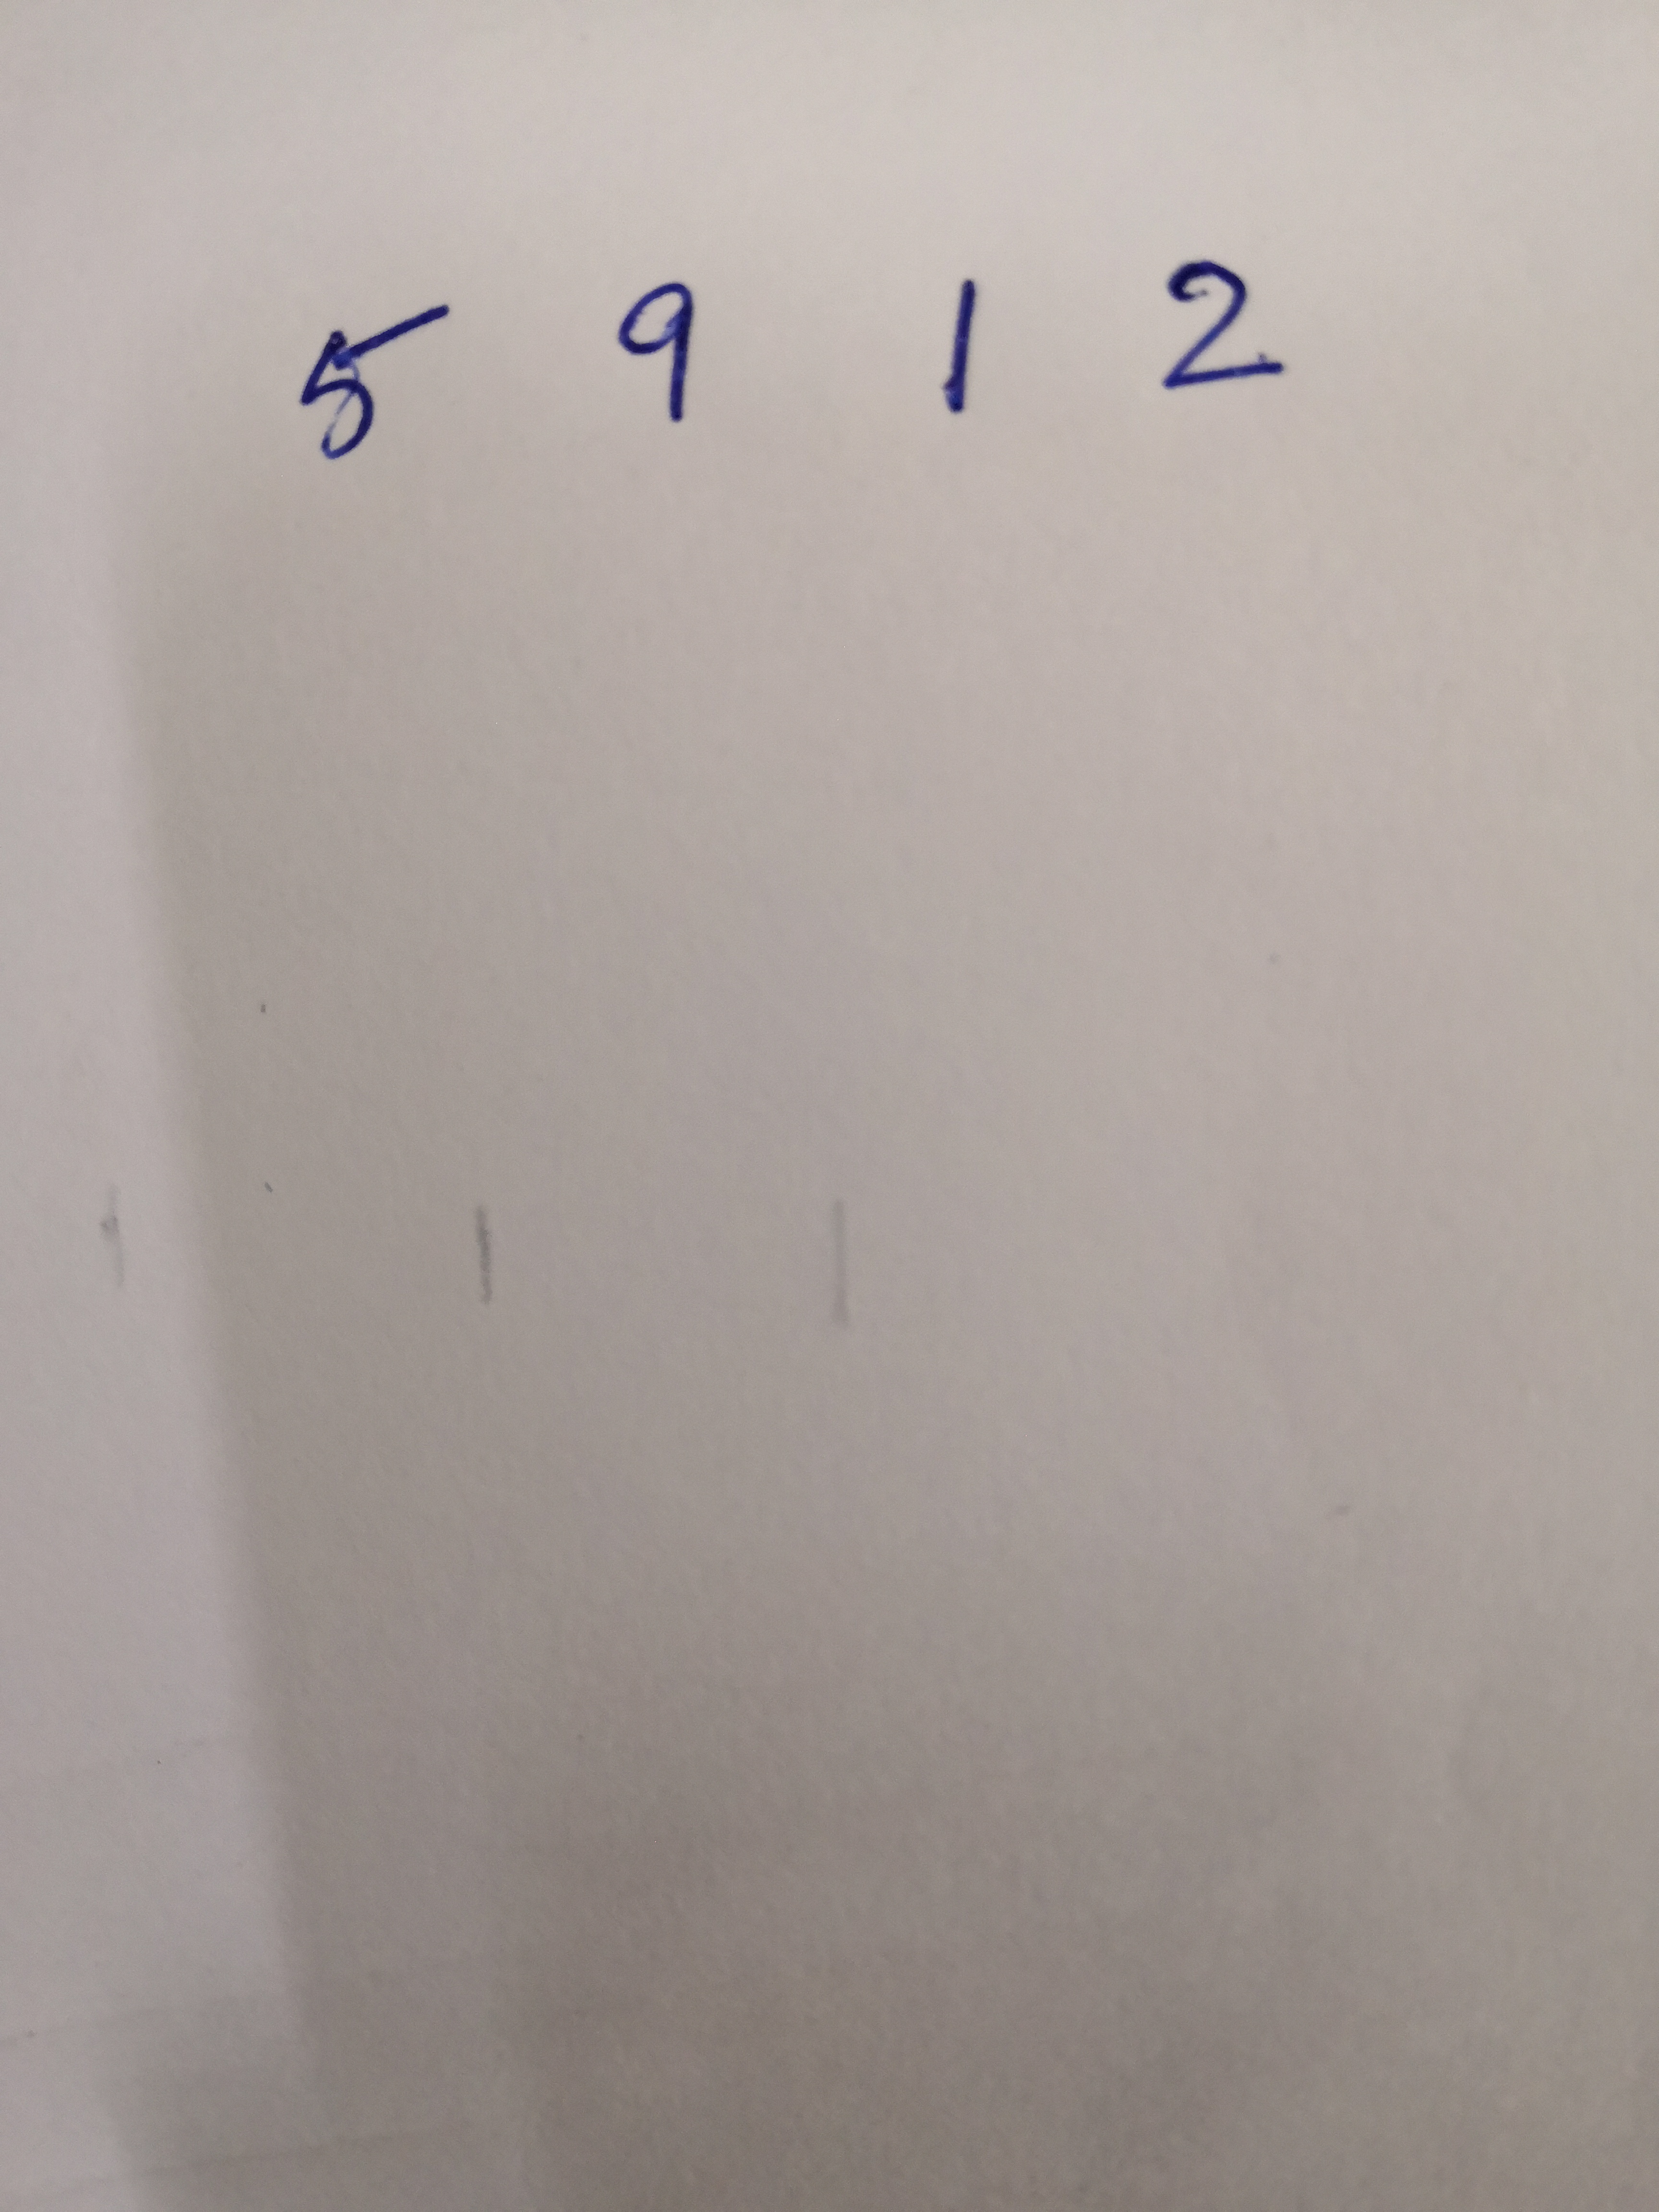 5 9 1 2